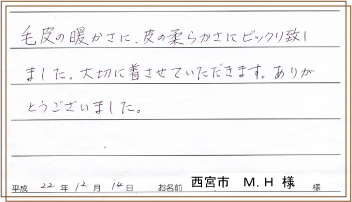 毛皮の暖かさに、皮の柔らかさにビックリ致し
ました。大切に着させていただきます。ありが
とうございました。
平成 22 年 12 月 14 日 お名前 西宮市 M.H 様 様